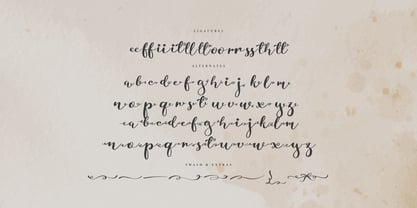 LIGATURES
eeffiiitllltoorrssthtt
ALTERNATES
abcdefghijklm
nopqrstuvwxyz
abcdefghijklm
nopqrstuvwxyz
SWASH & EXTRAS